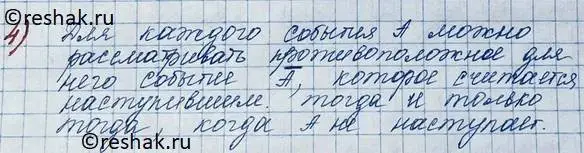 reshak.ru
4) Для каждого события A можно
рассматривать противоположное для
него событие A̅, которое считается
наступившим тогда и только
тогда, когда A не наступает.
reshak.ru